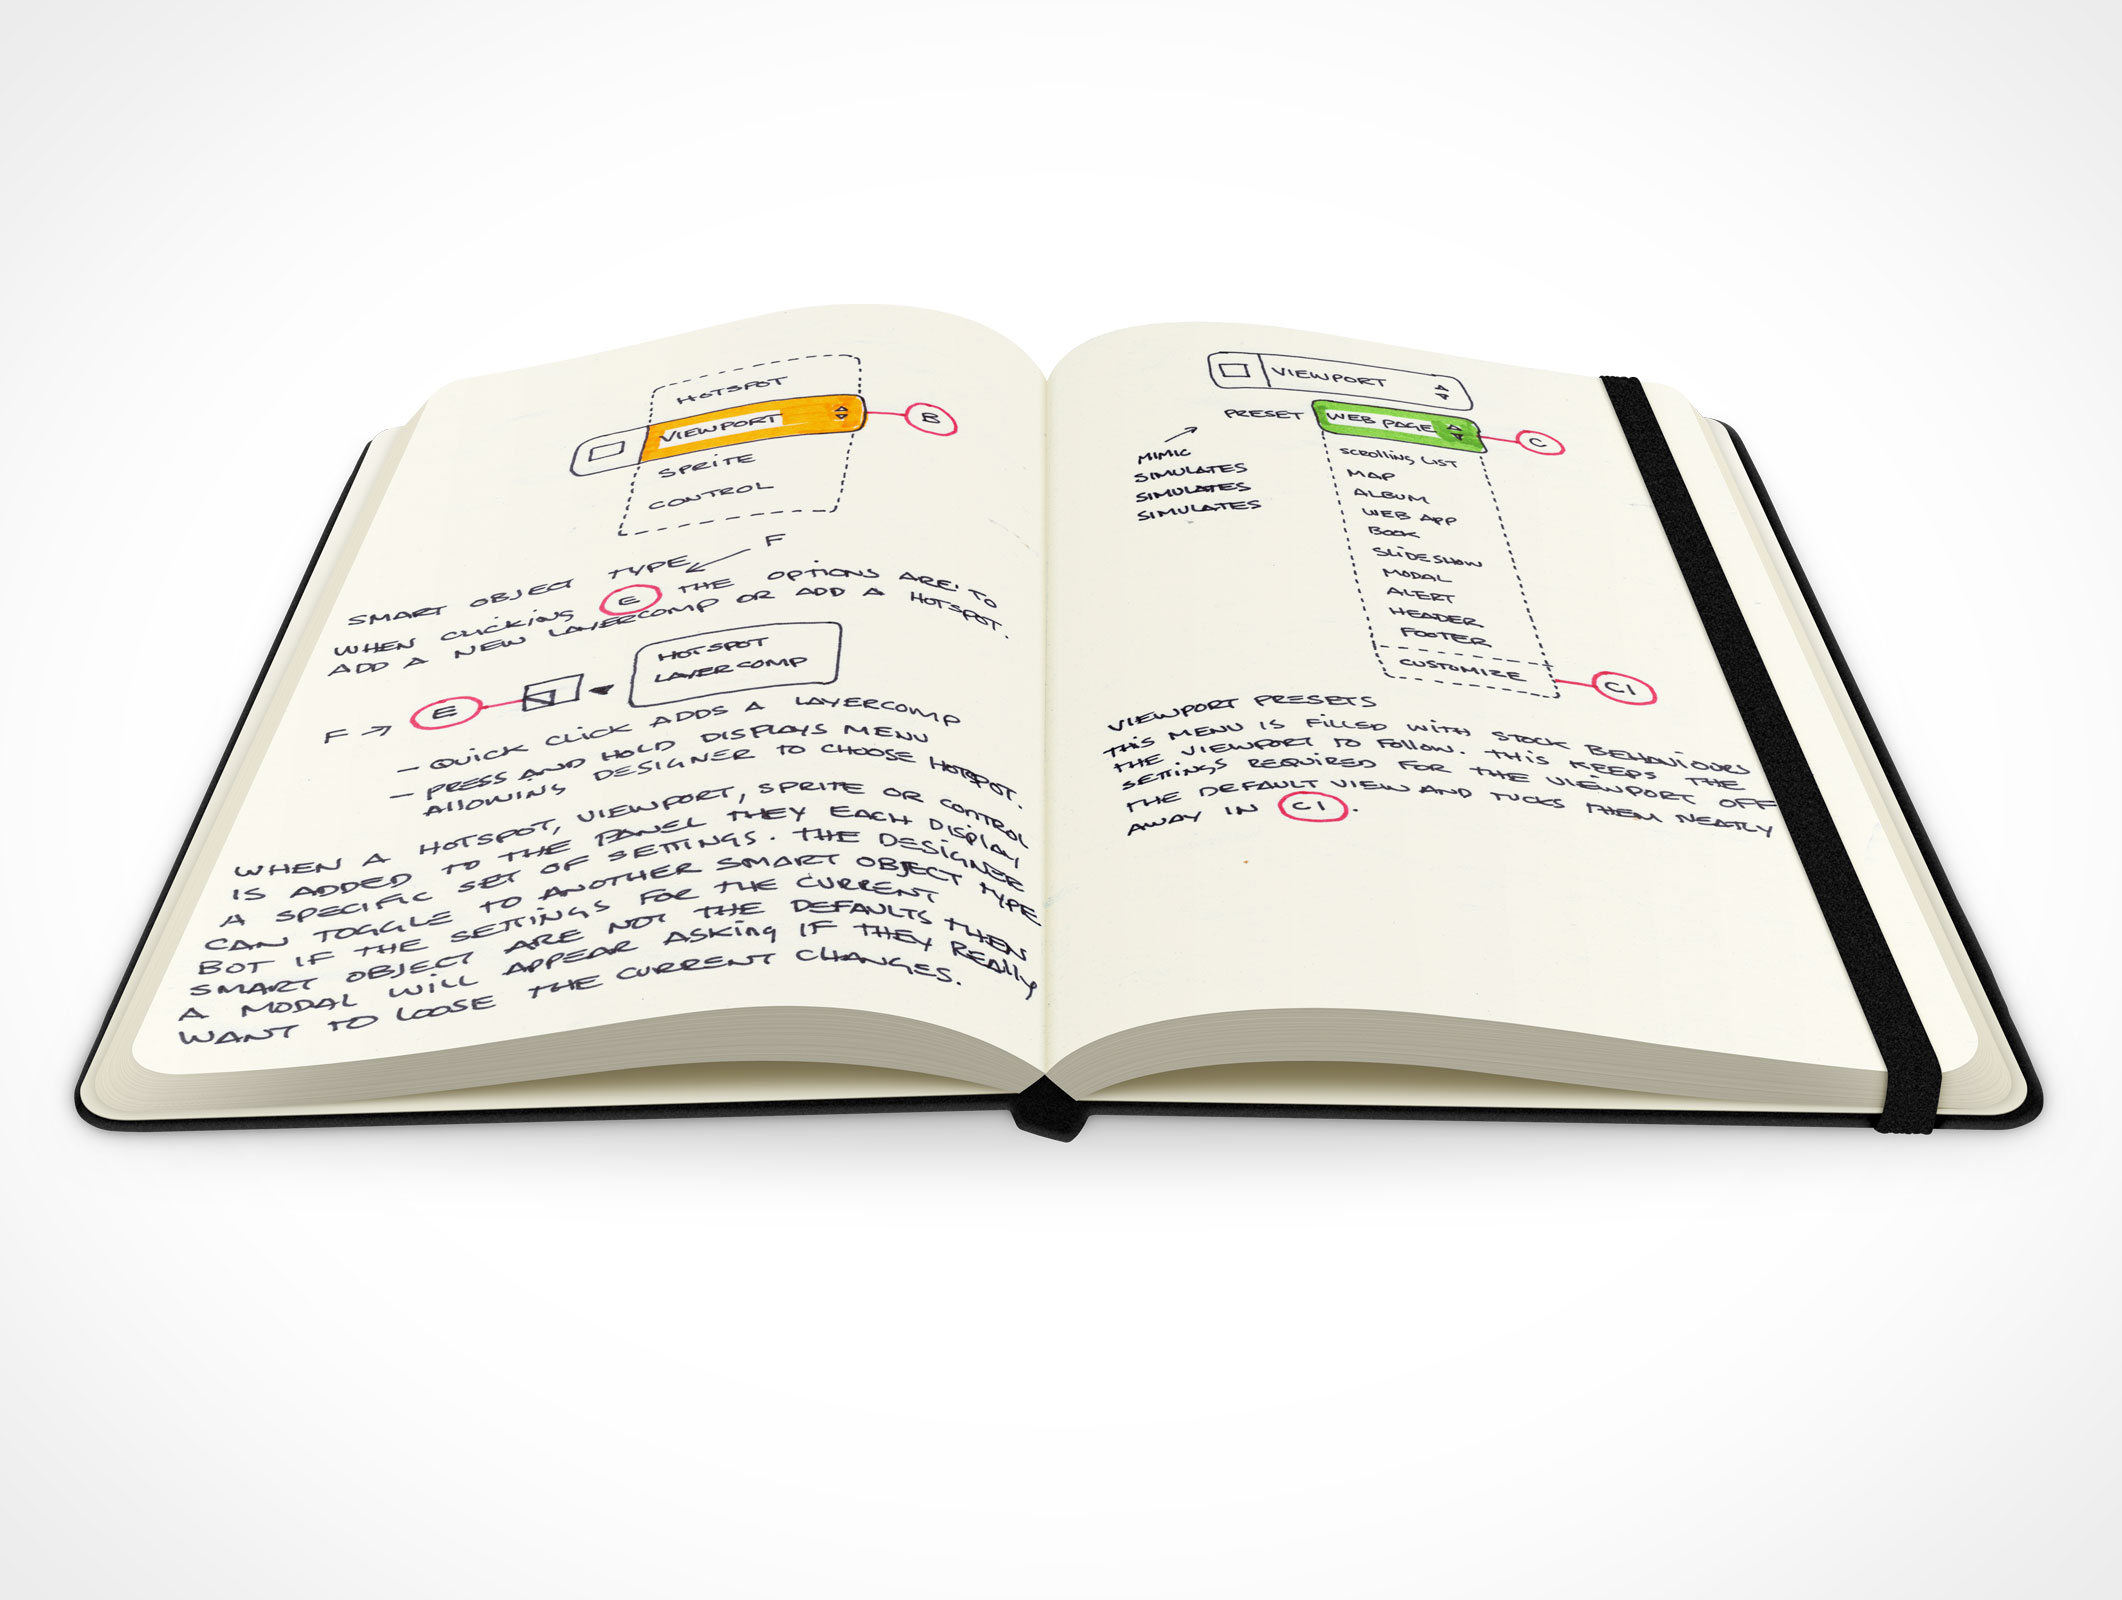 HOTSPOT
VIEWPORT
B
SPRITE
CONTROL
F
SMART OBJECT TYPE
WHEN CLICKING E THE OPTIONS ARE TO
ADD A NEW LAYERCOMP OR ADD A HOTSPOT.
HOTSPOT
LAYERCOMP
F → E
– QUICK CLICK ADDS A LAYERCOMP
– PRESS AND HOLD DISPLAYS MENU
ALLOWING DESIGNER TO CHOOSE HOTSPOT.
WHEN A HOTSPOT, VIEWPORT, SPRITE OR CONTROL
IS ADDED TO THE PANEL THEY EACH DISPLAY
A SPECIFIC SET OF SETTINGS. THE DESIGNER
CAN TOGGLE TO ANOTHER SMART OBJECT TYPE
BOT IF THE SETTINGS FOR THE CURRENT
SMART OBJECT ARE NOT THE DEFAULTS THEN
A MODAL WILL APPEAR ASKING IF THEY REALLY
WANT TO LOOSE THE CURRENT CHANGES.
VIEWPORT
PRESET WEB PAGE C
MIMIC
SIMULATES
SIMULATES
SIMULATES
SCROLLING LIST
MAP
ALBUM
WEB APP
BOOK
SLIDESHOW
MODAL
ALERT
HEADER
FOOTER
CUSTOMIZE
C1
VIEWPORT PRESETS
THIS MENU IS FILLED WITH STOCK BEHAVIOURS
THE VIEWPORT TO FOLLOW. THIS KEEPS THE
SETTINGS REQUIRED FOR THE VIEWPORT OFF
THE DEFAULT VIEW AND TUCKS THEM NEATLY
AWAY IN C1.